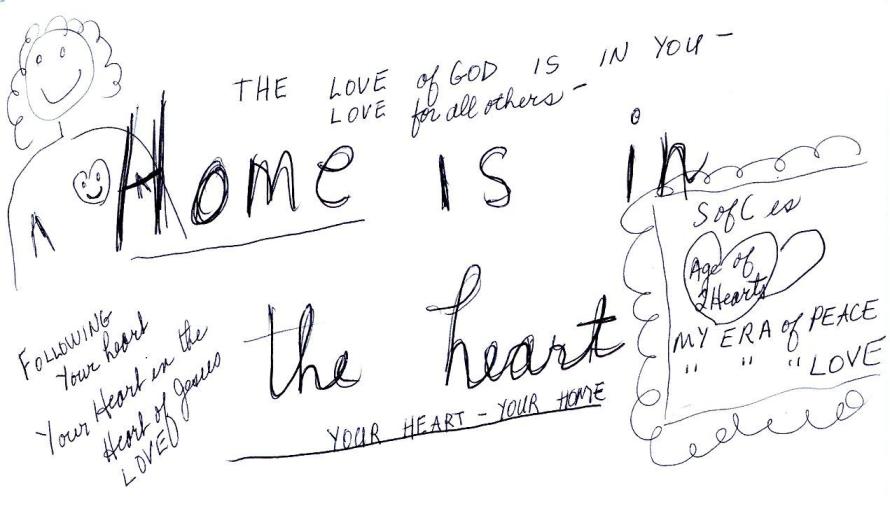 THE LOVE of GOD IS IN YOU -
LOVE for all others -
Home is in
the heart
YOUR HEART - YOUR HOME
FOLLOWING
Your heart
Your Heart in the
Heart of Jesus
LOVE
S of C es
Age of
2 Hearts
MY ERA of PEACE
" " " LOVE